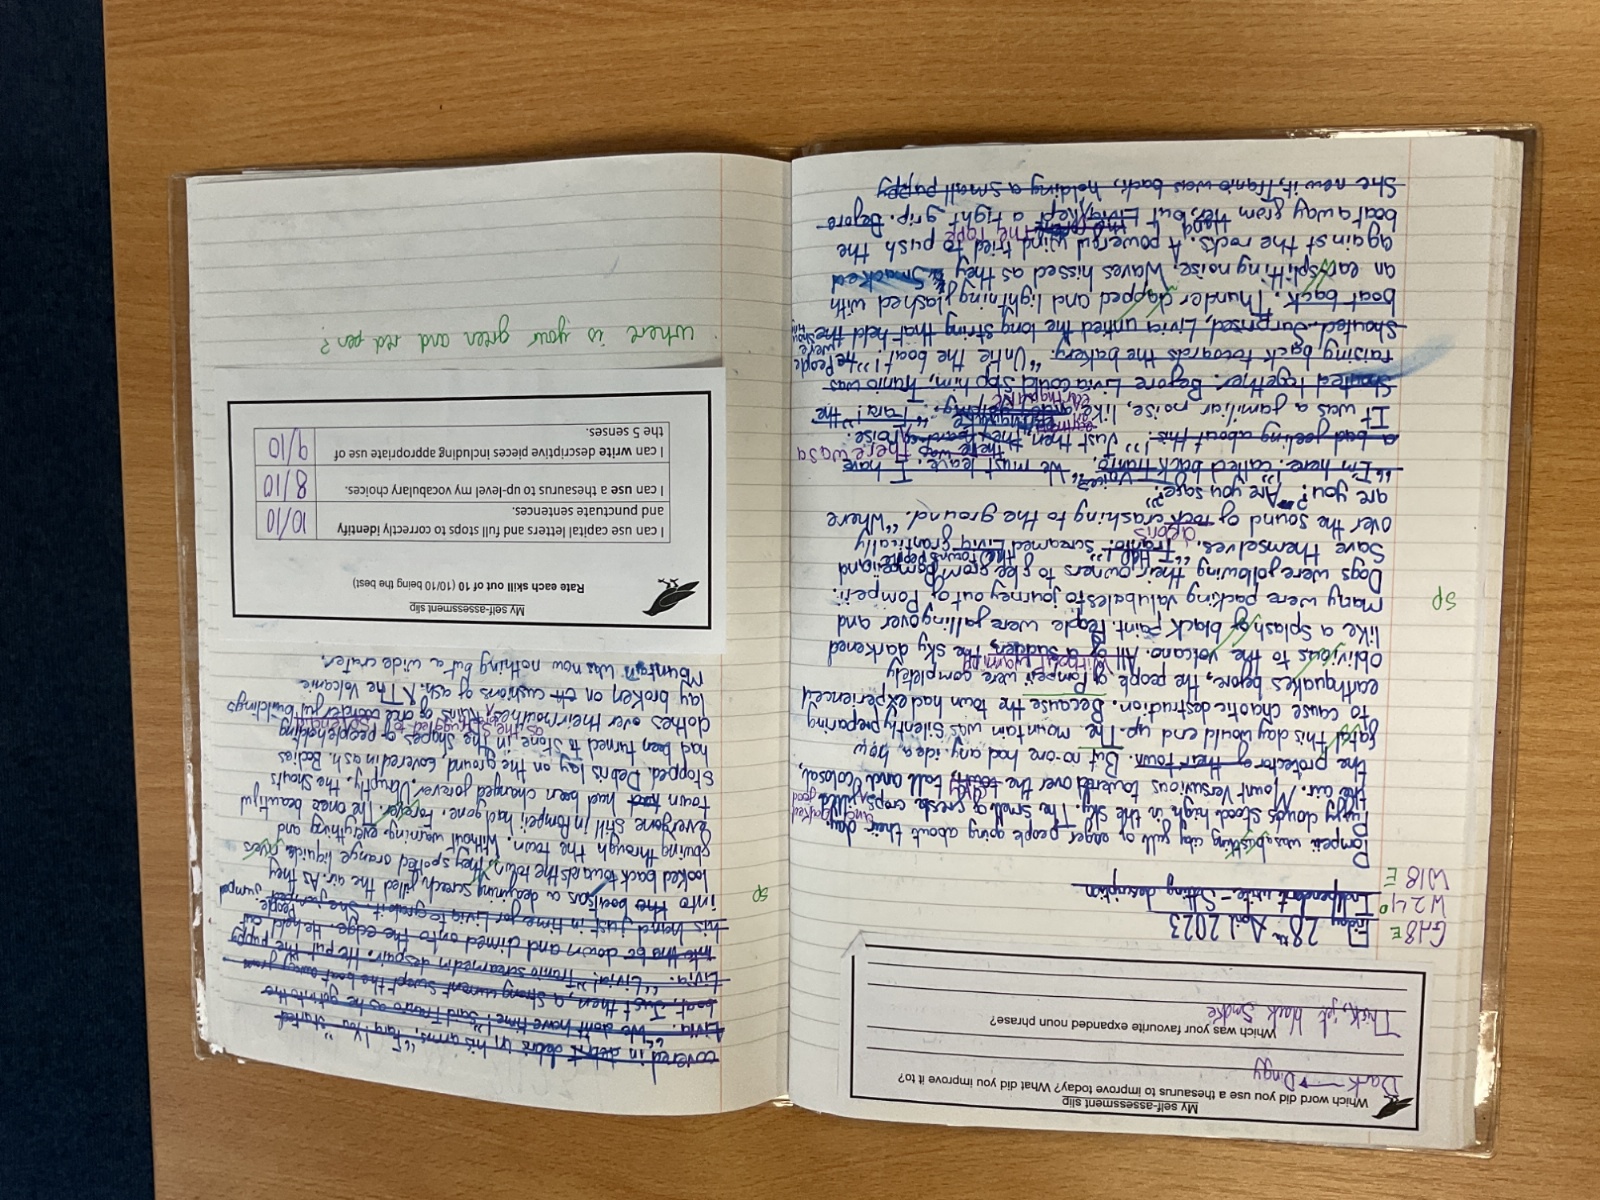 My self-assessment slip
Which word did you use a thesaurus to improve today? What did you improve it to?
Dark → Dingy
Which was your favourite expanded noun phrase?
Thick, jet black smoke
GH8 E
W24
W18 E
Friday 28th April 2023
Independent write - Setting description
Pompeii was a bustling city full of eager people going about their day
Fluffy clouds stood high in the sky. The smell of fresh crops
the air. Mount Versuvious towered over the tall and Colosal,
the protector of their town. But no-one had any idea how
fatal this day would end up. The mountain was silently preparing
to cause chaotic destruction. Because the town had experienced
earthquakes before, the people of Pompeii were completely
oblivious to the volcano. All of a sudden, the sky darkened
without warning
like a splash of black paint. People were falling over and
sp
many were packing valubales to journey out of Pompeii.
Dogs were following their owners to flee from Pompeii and
save themselves. "Tranio!" screamed Livia frantically
over the sound of rock crashing to the ground. "Where
are you? Are you safe?"
"I'm here! called back Tranio. "We must leave. I have
a bad feeling about this!" Just then, there was a noise.
There was a
It was a familiar noise, like
earthquake
"Fara!" the
shouted together. Before Livia could stop him, Tranio was
raising back towards the bakery. "Untie the boat!" He
People were
shouted. Surprised, Livia untied the long string that held the
boat back. Thunder clapped and lightning flashed with
an ear splitting noise. Waves hissed as they smacked
against the rocks. A powerful wind tried to push the
boat away from Her, but Livia kept a tight grip. Before
She new it, Tranio was back, holding a small puppy
covered in debris in his arms. "Fairly You started"
Livia. "We don't have time!" Said Tranio as he got into the
boat. Just then, a strong current swept the boat away from
Livia. "Livia!" Tranio screamed in despair. He put the puppy
into the be down and climed onto the edge. He held out
his hand just in time for Livia to grab it. She jumped
People
sp
into the boat as a defining screech filled the air. As they
looked back towards the town, they spotted orange liquide
flowing through the town. Without warning everything and
everyone still in Pompeii had gone. Forever. The once beautiful
town had been changed forever. Abruptly, the shouts
stopped. Debris lay on the ground, covered in ash. Bodies
had been turned to stone in the shapes of people holding
as they struggled to
clothes over their mouths. Ruins of wonderful buildings
lay broken on cushions of ash. The Volcanic
Mountain was now nothing but a wide crater.
My self-assessment slip
Rate each skill out of 10 (10/10 being the best)
I can use capital letters and full stops to correctly identify and punctuate sentences. 10/10
I can use a thesaurus to up-level my vocabulary choices. 8/10
I can write descriptive pieces including appropriate use of the 5 senses. 9/10
Where is your green and red pen?